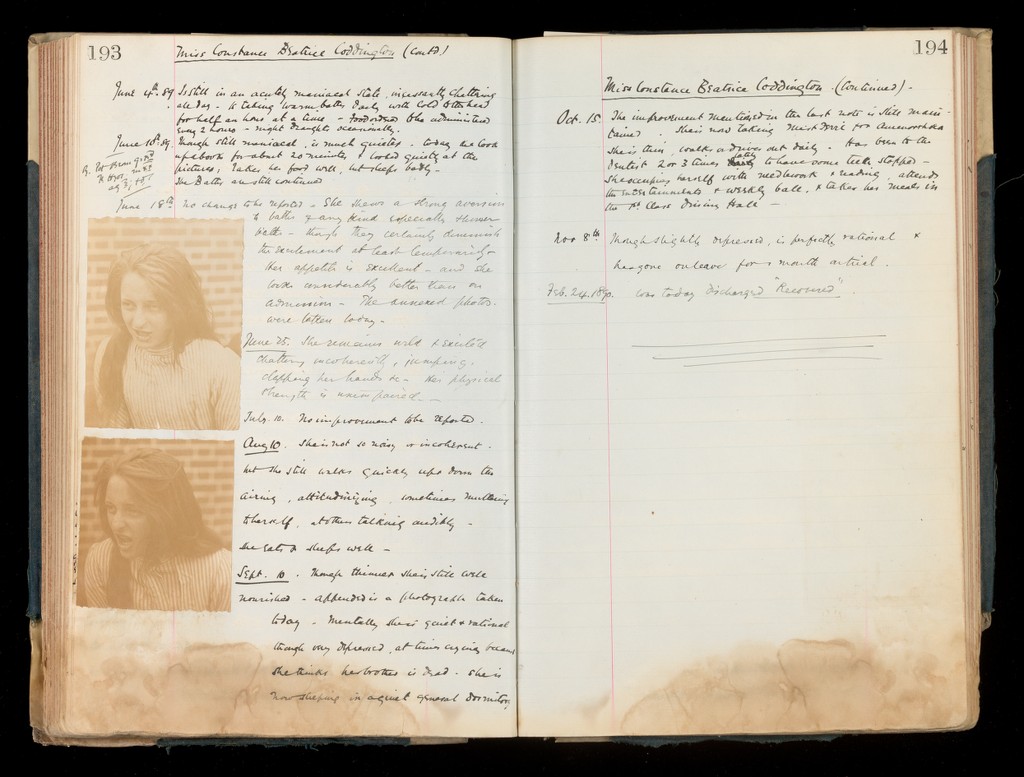 193
Miss Constance Beatrice Coddington (Contd)
June 4th. 89. Is still in an acutely maniacal state, incessantly chattering
all day - Is taking warm baths daily with Cold to the head
for half an hour at a time - Food ordered to be administered
every 2 hours - night draughts occasionally.
June 10th. 89. Though still maniacal, is much quieter - today she took
up a book for about 20 minutes & looked quietly at the
pictures, Takes her food well, but sleeps badly -
The Baths are still continued
June 18th No change to be reported - She shews a strong aversion
to baths of any kind especially shower
baths - though they certainly diminish
the excitement at least temporarily -
Her appetite is excellent - and she
looks considerably better than on
admission - The annexed photos.
were taken today -
June 25. She remains wild & excited
chattering incoherently, jumping,
clapping her hands &c - Her physical
strength is unimpaired -
July 10. No improvement to be reported.
Aug 10. She is not so noisy or incoherent.
but she still walks quickly up & down the
airing, attitudinizing, sometimes muttering
to herself, at others talking audibly -
She eats & sleeps well -
Sept. 10. Though thinner she is still well
nourished - appended is a photograph taken
today - Mentally she is quiet & rational
though very depressed, at times crying because
she thinks her brother is dead. She is
now sleeping in a quiet general dormitory
194
Miss Constance Beatrice Coddington (Continued).
Oct. 15. The improvement mentioned in the last note is still main-
tained. She is now taking for Amenorrhoea
She is thin, walks or drives out daily. Has been to the
Dentist 2 or 3 times lately to have some teeth stopped -
She occupies herself with needlework & reading, attends
the entertainments & weekly ball, & takes her meals in
the 1st Class Dining Hall -
Nov 8th. Though slightly depressed, is perfectly rational &
has gone on leave for 1 month on trial.
Feb. 24. 1890. Was today Discharged "Recovered".